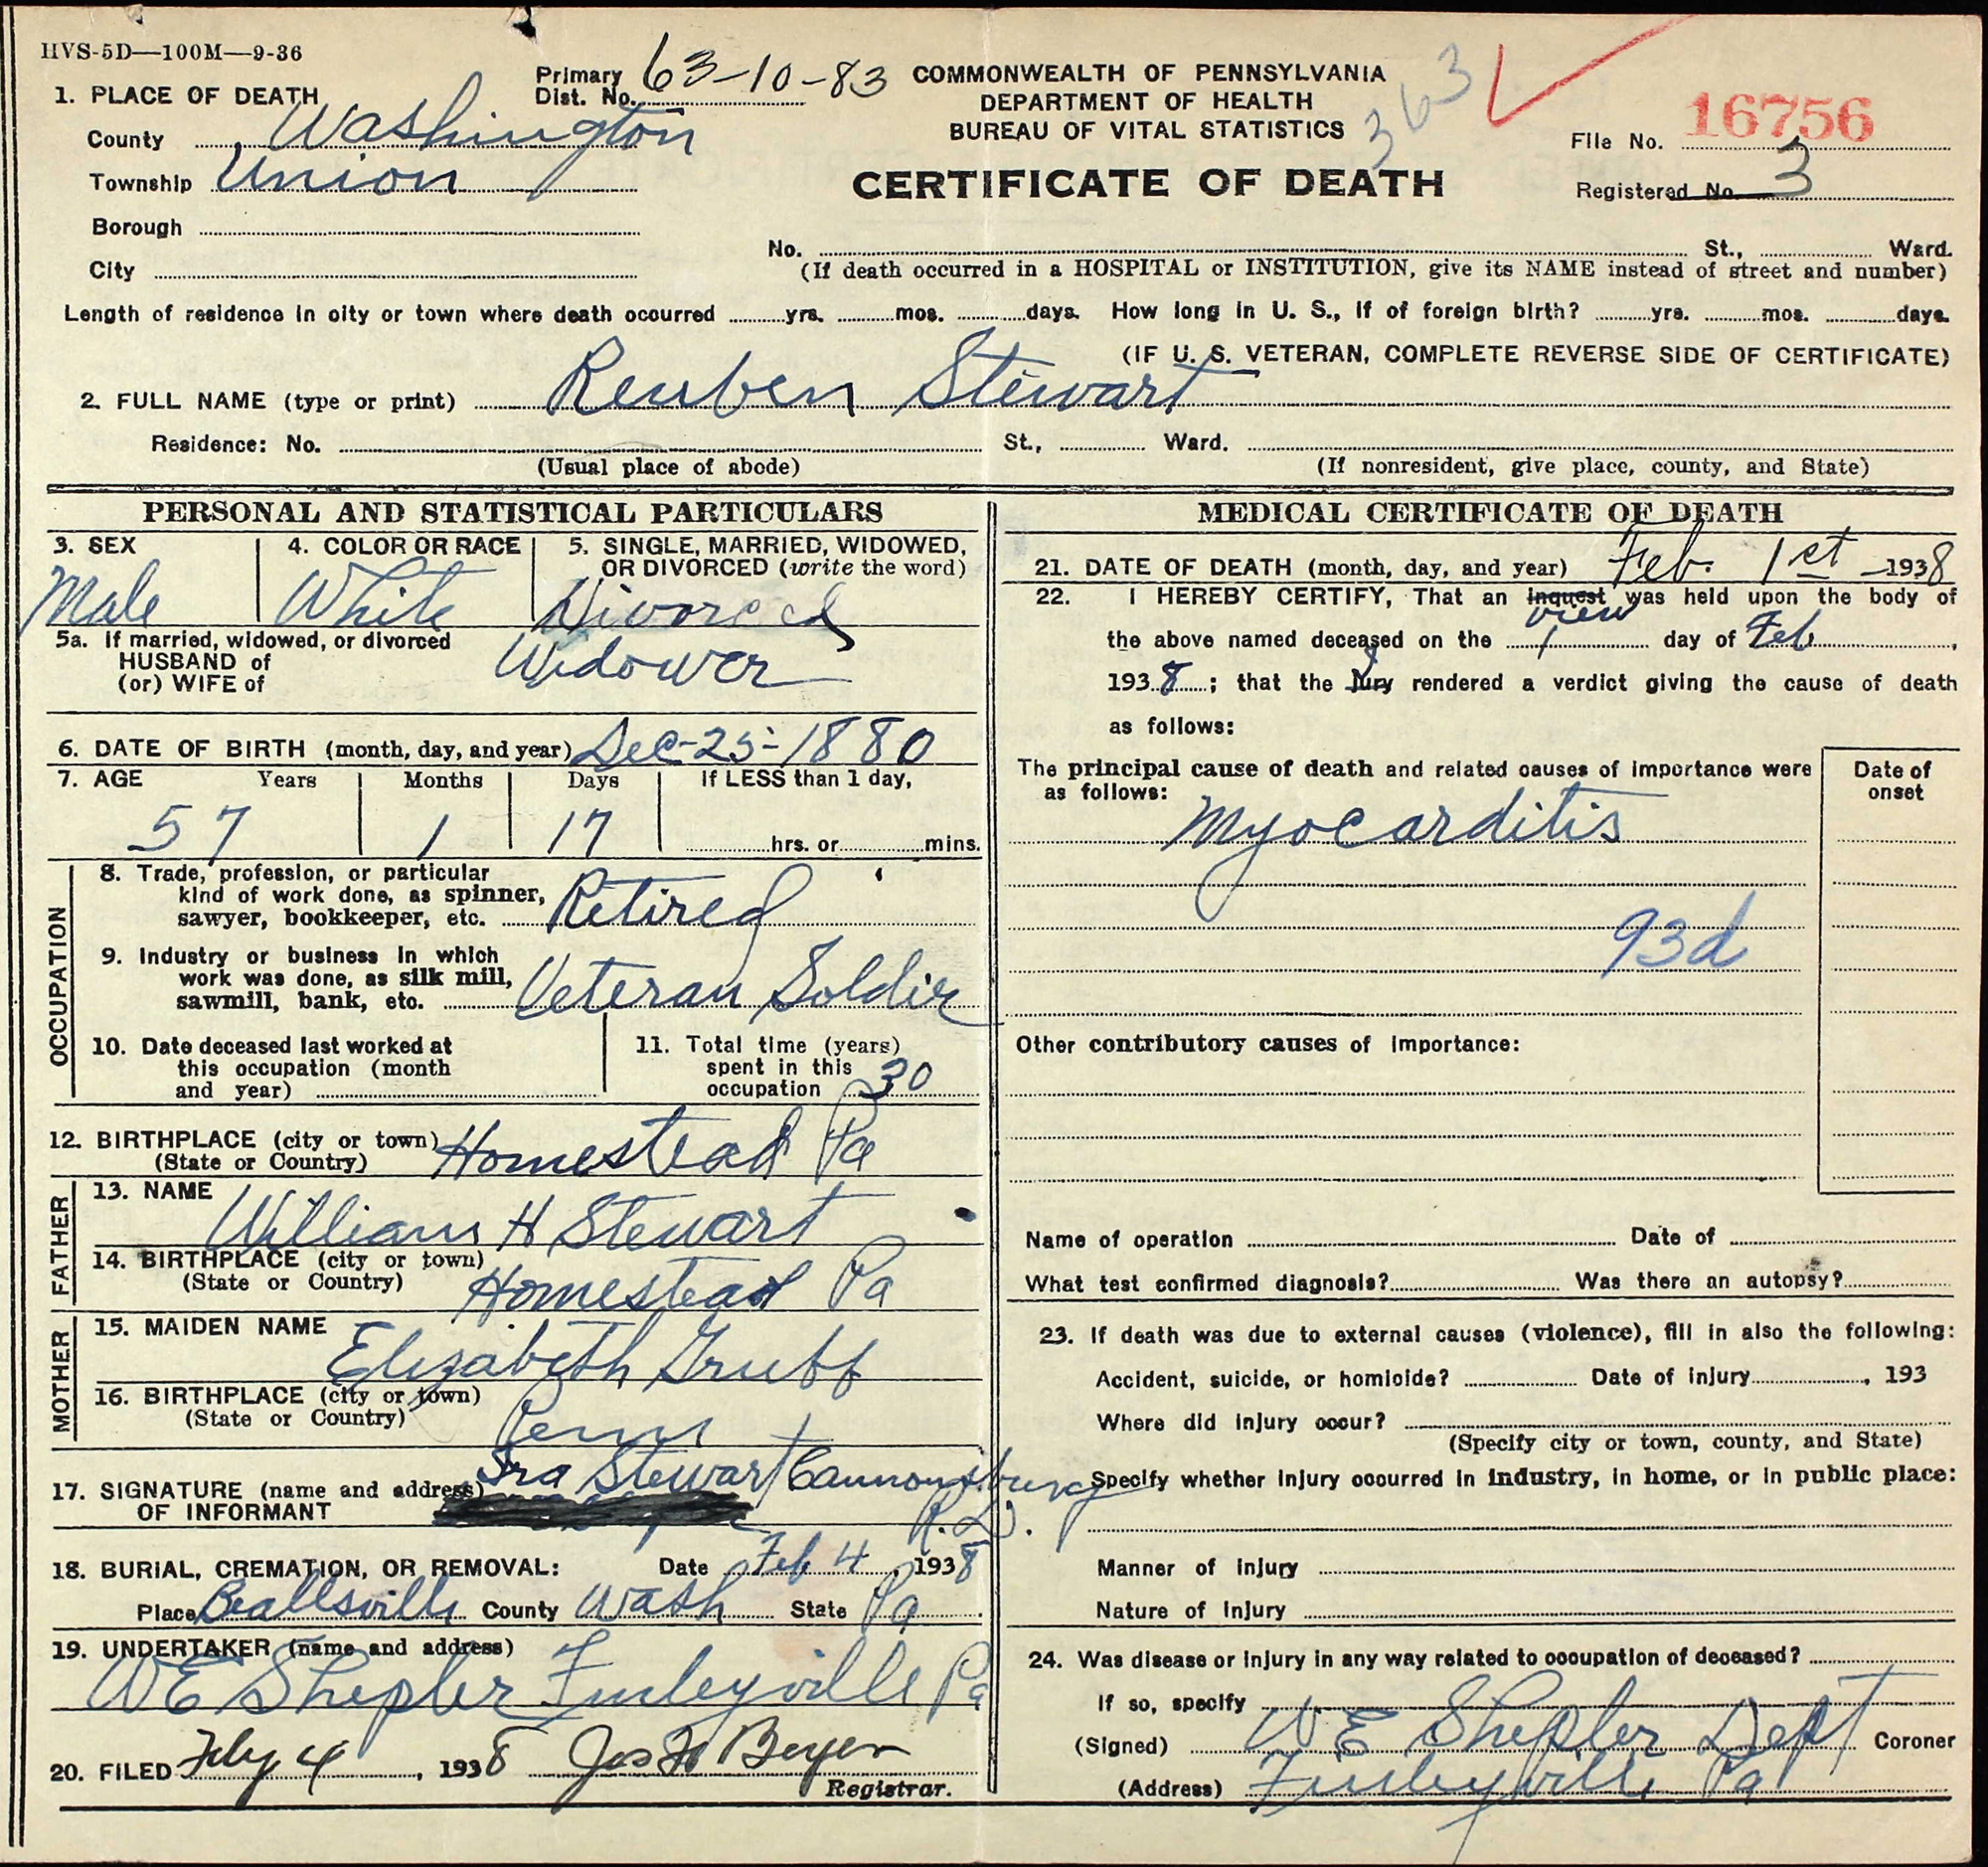 HVS-5D—100M—9-36
Primary Dist. No. 63-10-83
COMMONWEALTH OF PENNSYLVANIA
DEPARTMENT OF HEALTH
BUREAU OF VITAL STATISTICS
363
CERTIFICATE OF DEATH
File No. 16756
Registered No. 3
1. PLACE OF DEATH
County Washington
Township Union
Borough
City
No. St., Ward.
(If death occurred in a HOSPITAL or INSTITUTION, give its NAME instead of street and number)
Length of residence in city or town where death occurred yrs. mos. days. How long in U. S., if of foreign birth? yrs. mos. days.
(IF U. S. VETERAN, COMPLETE REVERSE SIDE OF CERTIFICATE)
2. FULL NAME (type or print) Reuben Stewart
Residence: No. St., Ward.
(Usual place of abode) (If nonresident, give place, county, and State)
PERSONAL AND STATISTICAL PARTICULARS
3. SEX 4. COLOR OR RACE 5. SINGLE, MARRIED, WIDOWED,
OR DIVORCED (write the word)
Male White Divorced
5a. If married, widowed, or divorced
HUSBAND of
(or) WIFE of
Widower
6. DATE OF BIRTH (month, day, and year) Dec-25-1880
7. AGE Years Months Days If LESS than 1 day,
57 1 17 hrs. or mins.
OCCUPATION
8. Trade, profession, or particular
kind of work done, as spinner,
sawyer, bookkeeper, etc. Retired
9. Industry or business in which
work was done, as silk mill,
sawmill, bank, etc. Veteran Soldier
10. Date deceased last worked at
this occupation (month
and year)
11. Total time (years)
spent in this
occupation 30
12. BIRTHPLACE (city or town) Homestead Pa
(State or Country)
FATHER
13. NAME William H Stewart
14. BIRTHPLACE (city or town)
(State or Country) Homestead Pa
MOTHER
15. MAIDEN NAME
Elizabeth Grubb
16. BIRTHPLACE (city or town)
(State or Country) Penn
17. SIGNATURE (name and address) Ira Stewart Cannonsburg
OF INFORMANT R.D.
18. BURIAL, CREMATION, OR REMOVAL: Date Feb 4 1938
Place Beallsville County Wash State Pa
19. UNDERTAKER (name and address)
W E Shepler Finleyville Pa
20. FILED Feby 4, 1938 Jos H Beyer
Registrar.
MEDICAL CERTIFICATE OF DEATH
21. DATE OF DEATH (month, day, and year) Feb. 1st -1938
22. I HEREBY CERTIFY, That an Inquest was held upon the body of
view
the above named deceased on the 1 day of Feb,
1938; that the Jury rendered a verdict giving the cause of death
as follows:
The principal cause of death and related causes of importance were
as follows:
Date of
onset
Myocarditis
93d
Other contributory causes of importance:
Name of operation Date of
What test confirmed diagnosis? Was there an autopsy?
23. If death was due to external causes (violence), fill in also the following:
Accident, suicide, or homicide? Date of injury, 193
Where did injury occur?
(Specify city or town, county, and State)
Specify whether injury occurred in industry, in home, or in public place:
Manner of injury
Nature of injury
24. Was disease or injury in any way related to occupation of deceased?
If so, specify
(Signed) W E Shepler Dept Coroner
(Address) Finleyville Pa